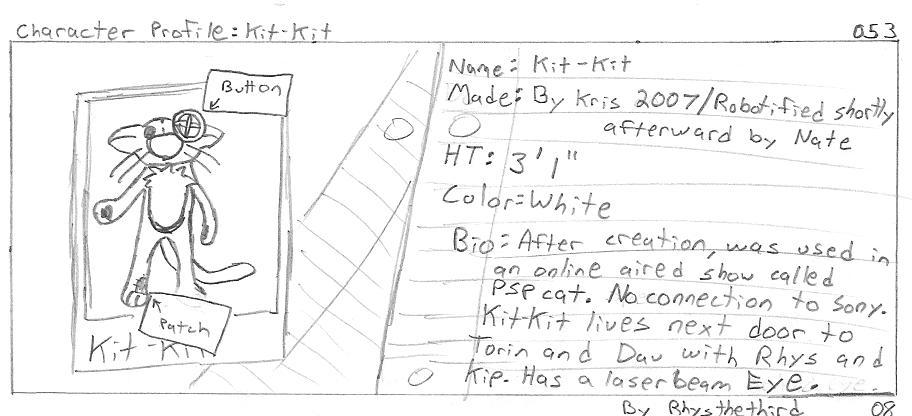 Character Profile: Kit-Kit
053
Button
Patch
Kit-Kit
Name: Kit-Kit
Made: By Kris 2007/Robotified shortly
afterward by Nate
HT: 3'1"
Color=White
Bio: After creation, was used in
an online aired show called
PSP cat. No connection to Sony.
Kit-Kit lives next door to
Torin and Dav with Rhys and
Kip. Has a laser beam Eye.
By Rhysthethird
08